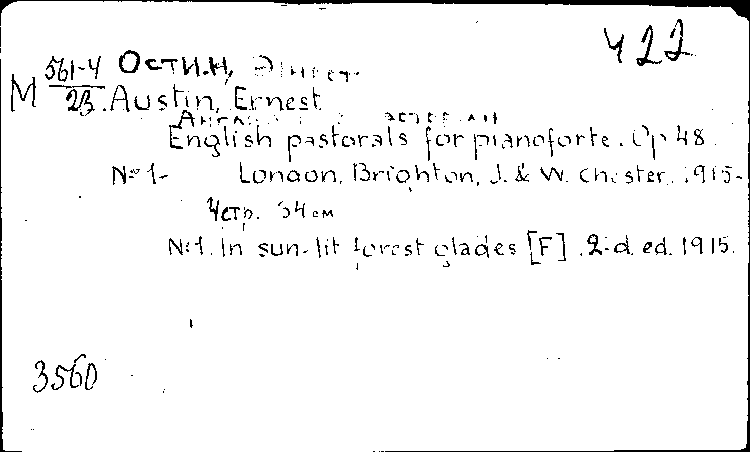 422
M 561-4/23 Остин,
Austin, Ernest
English pastorals for pianoforte. Op 48.
№ 1- London, Brighton, J. & W. Chester. 1915-
34 см
№1. In sun-lit forest glades [F]. 2-d. ed. 1915.
3560